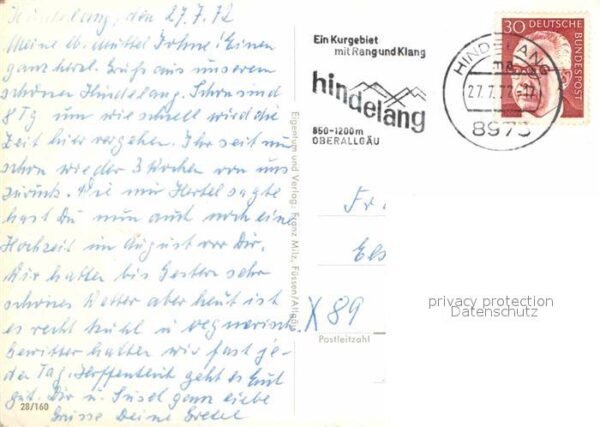 Hindelang, den 27.7.72
Meine lb. Einen
ganz herzl. Gruß aus unserem
schönen Hindelang. Schon sind
8 Tg um wie schnell wird die
Zeit hier vergehen. Ihr seit nun
schon wieder 3 von uns
zurück. Wie mir Hertel sagte
hast Du nun auch noch eine
Hochzeit im August vor Dir.
Wir hatten bis Gestern sehr
schönes Wetter aber heut ist
es recht kühl u regnerisch
Gewitter hatten wir fast je-
den Tag. Hoffentlich geht es Euch
gut. Dir u. Susel ganz liebe
Grüsse Deine Gretel
28/160
Eigentum und Verlag: Franz Milz, Füssen/Allgäu
Ein Kurgebiet
mit Rang und Klang
hindelang
850-1200m
OBERALLGÄU
HINDELANG
27.7.72-17
8973
30 DEUTSCHE
BUNDESPOST
Fr
Els
X 89
Postleitzahl
privacy protection
Datenschutz